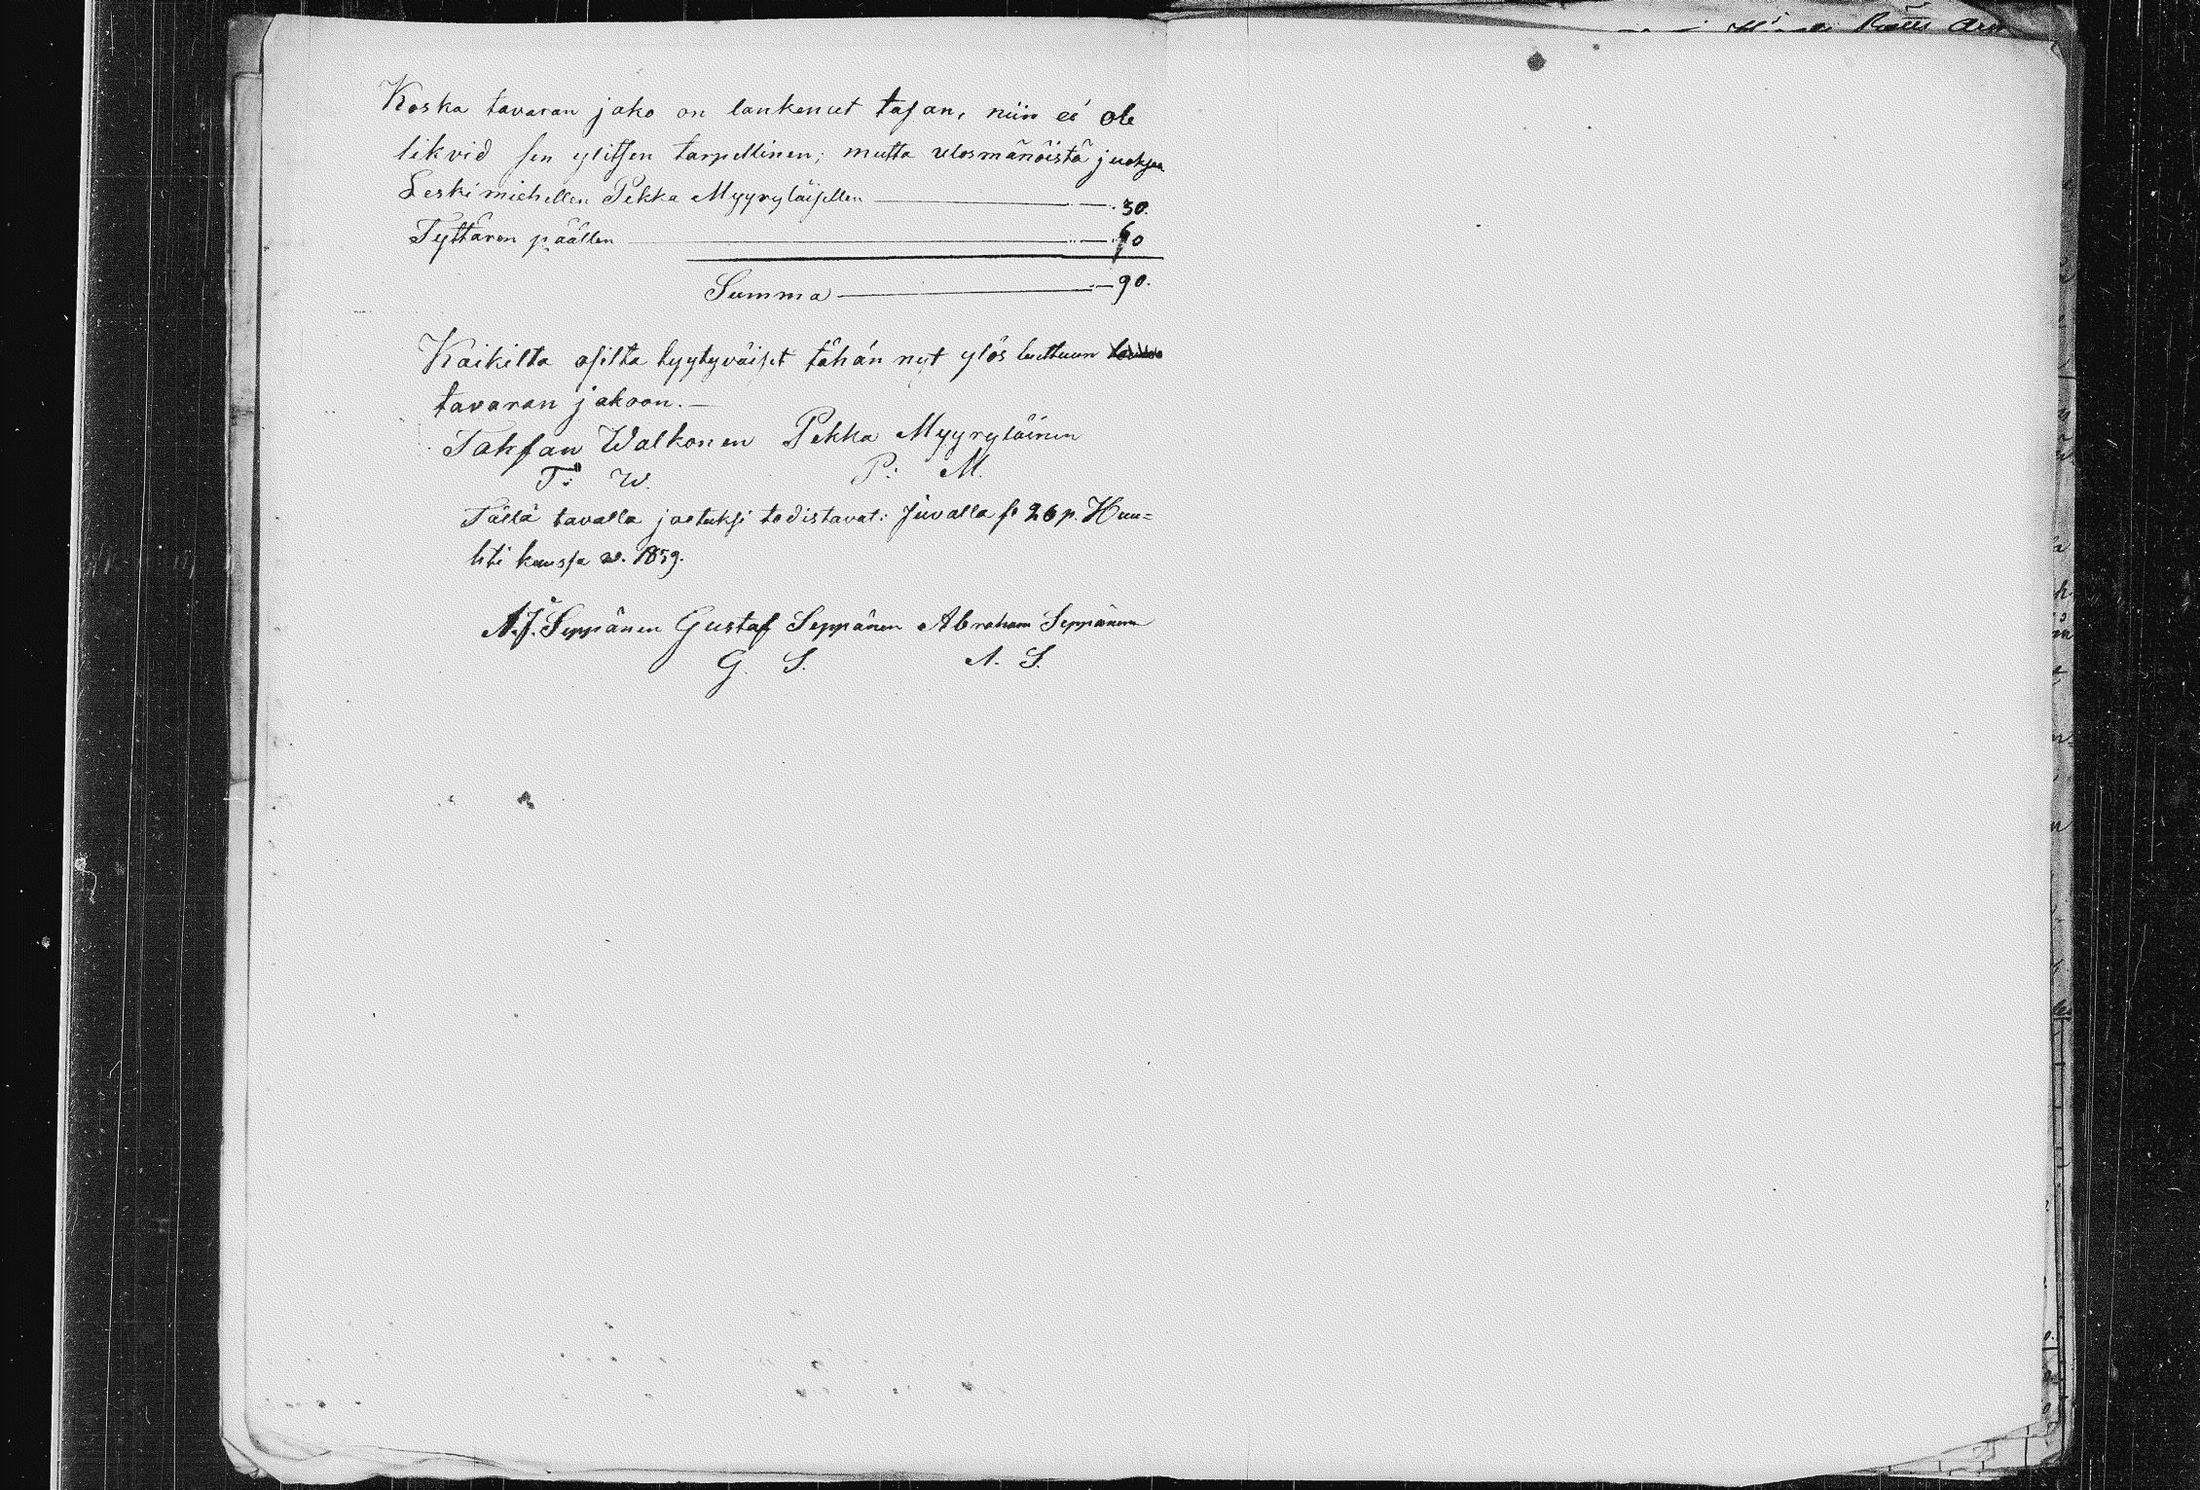 Koska tavaran jako on lankenut tasan, niin ei ole
likvid sen ylitsen tarpellinen; mutta ulosmänöistä juoksee
Leskimiehellen Pekka Myyryläisellen — 30.
Tyttären päällen — 60
Summa — 90.
Kaikilta osilta tyytyväiset tähän nyt ylös luettuun
tavaran jakoon. —
Tahfan Walkonen Pekka Myyryläinen
T: W. P: M.
Tällä tavalla jaetuksi todistavat: Juvalla s. 26 p. Huu=
hti kuussa w. 1859.
A.J. Seppänen Gustaf Seppänen Abraham Seppänen
G. S. A. S.